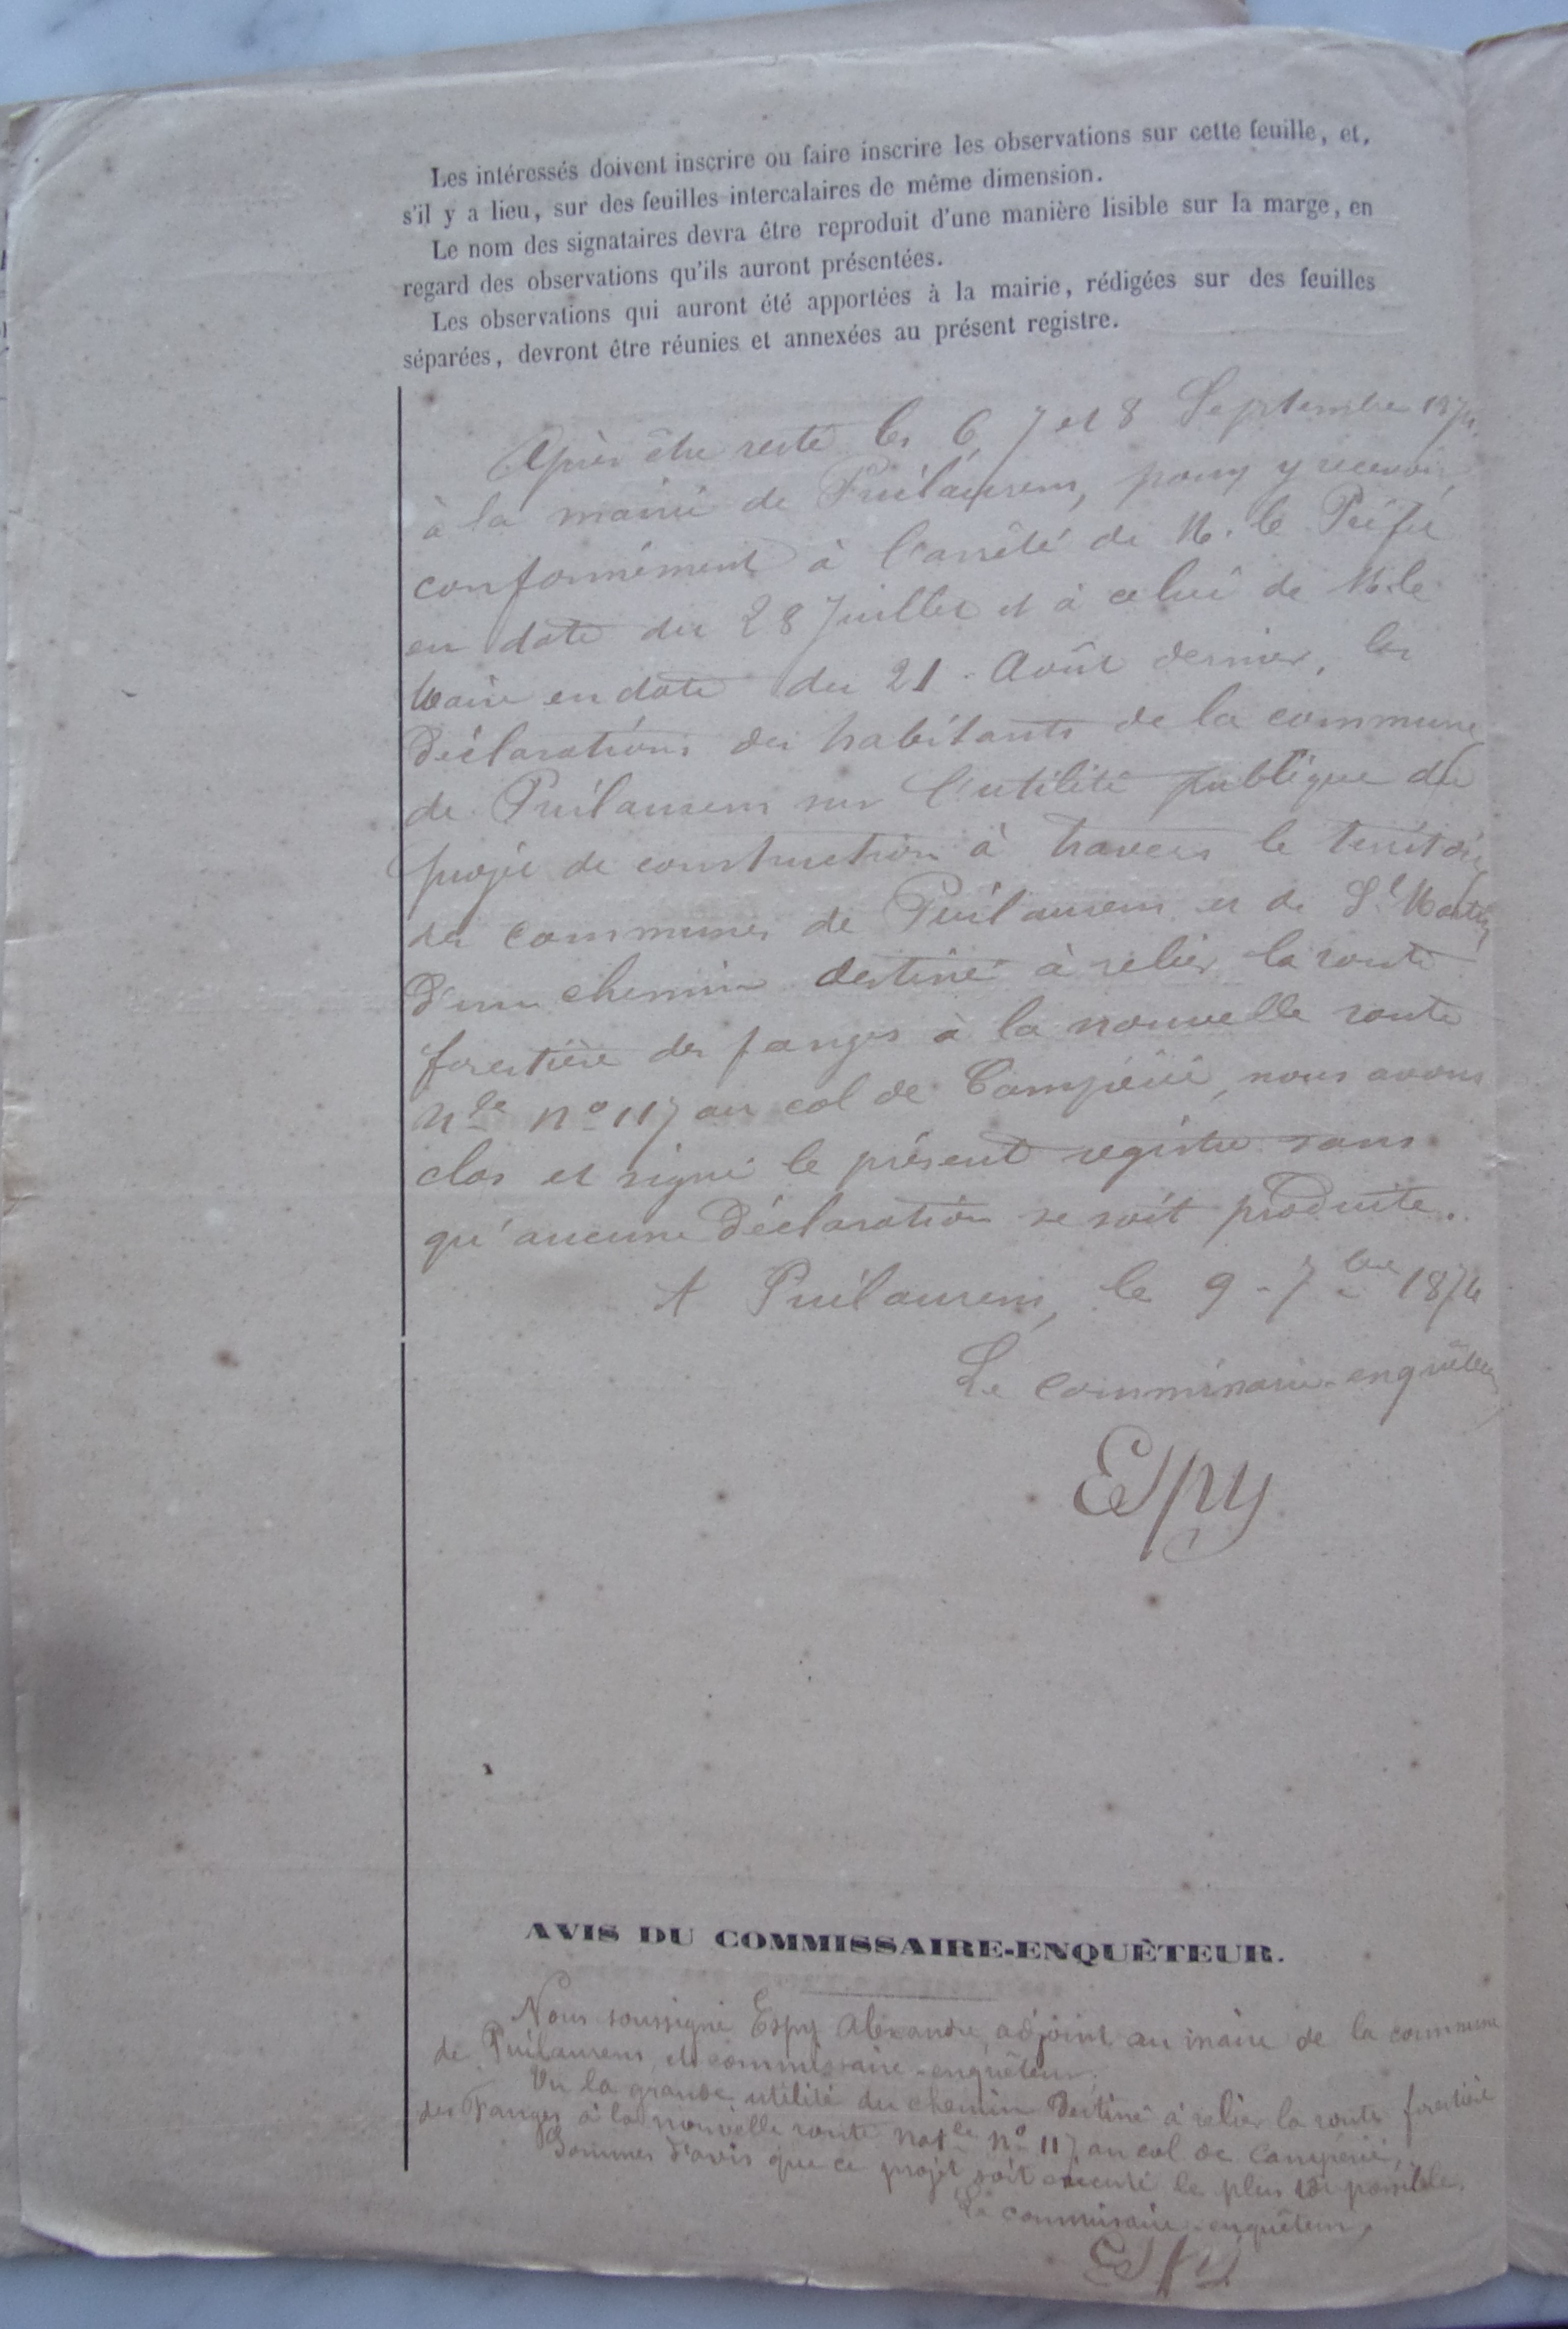 Les intéressés doivent inscrire ou faire inscrire les observations sur cette feuille, et,
s'il y a lieu, sur des feuilles intercalaires de même dimension.
Le nom des signataires devra être reproduit d'une manière lisible sur la marge, en
regard des observations qu'ils auront présentées.
Les observations qui auront été apportées à la mairie, rédigées sur des feuilles
séparées, devront être réunies et annexées au présent registre.
Après être resté les 6, 7 et 8 Septembre
à la mairie de Puilaurens, pour y recevoir,
conformément à l'arrêté de M. le Préfet
en date du 28 Juillet et à celui de M. le
Maire en date du 21 Août dernier, les
déclarations des habitants de la commune
de Puilaurens sur l'utilité publique du
projet de construction à travers le territoire
des communes de Puilaurens et de St Martin
d'un chemin destiné à relier la route
forestière des fanges à la nouvelle route
Nle no 117 au col de Campérié, nous avons
clos et signé le présent registre sans
qu'aucune déclaration se soit produite.
A Puilaurens, le 9 - 7bre 1874
Le commissaire-enquêteur
Espy
AVIS DU COMMISSAIRE-ENQUÊTEUR.
Nous soussigné Espy Alexandre, adjoint au maire de la commune
de Puilaurens, et commissaire-enquêteur,
Vu la grande utilité du chemin destiné à relier la route forestière
des Fanges à la nouvelle route natle no 117 au col de Campérié,
Sommes d'avis que ce projet soit exécuté le plus tôt possible.
Le commissaire-enquêteur,
Espy